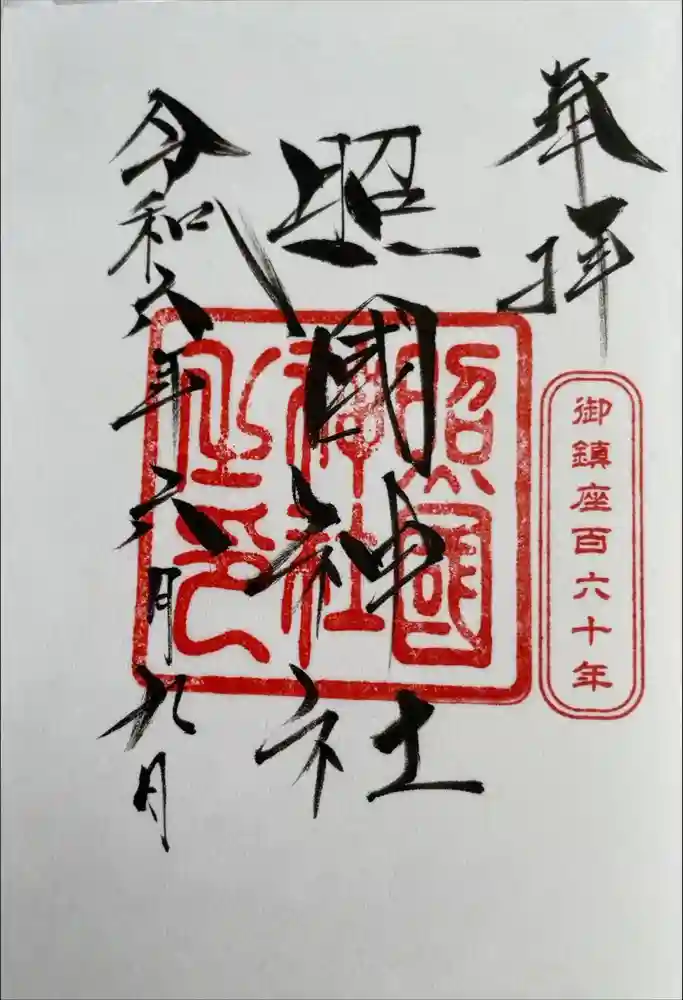 奉拝
御鎮座百六十年
照國神社
照國
神社
之印
令和六年六月九日